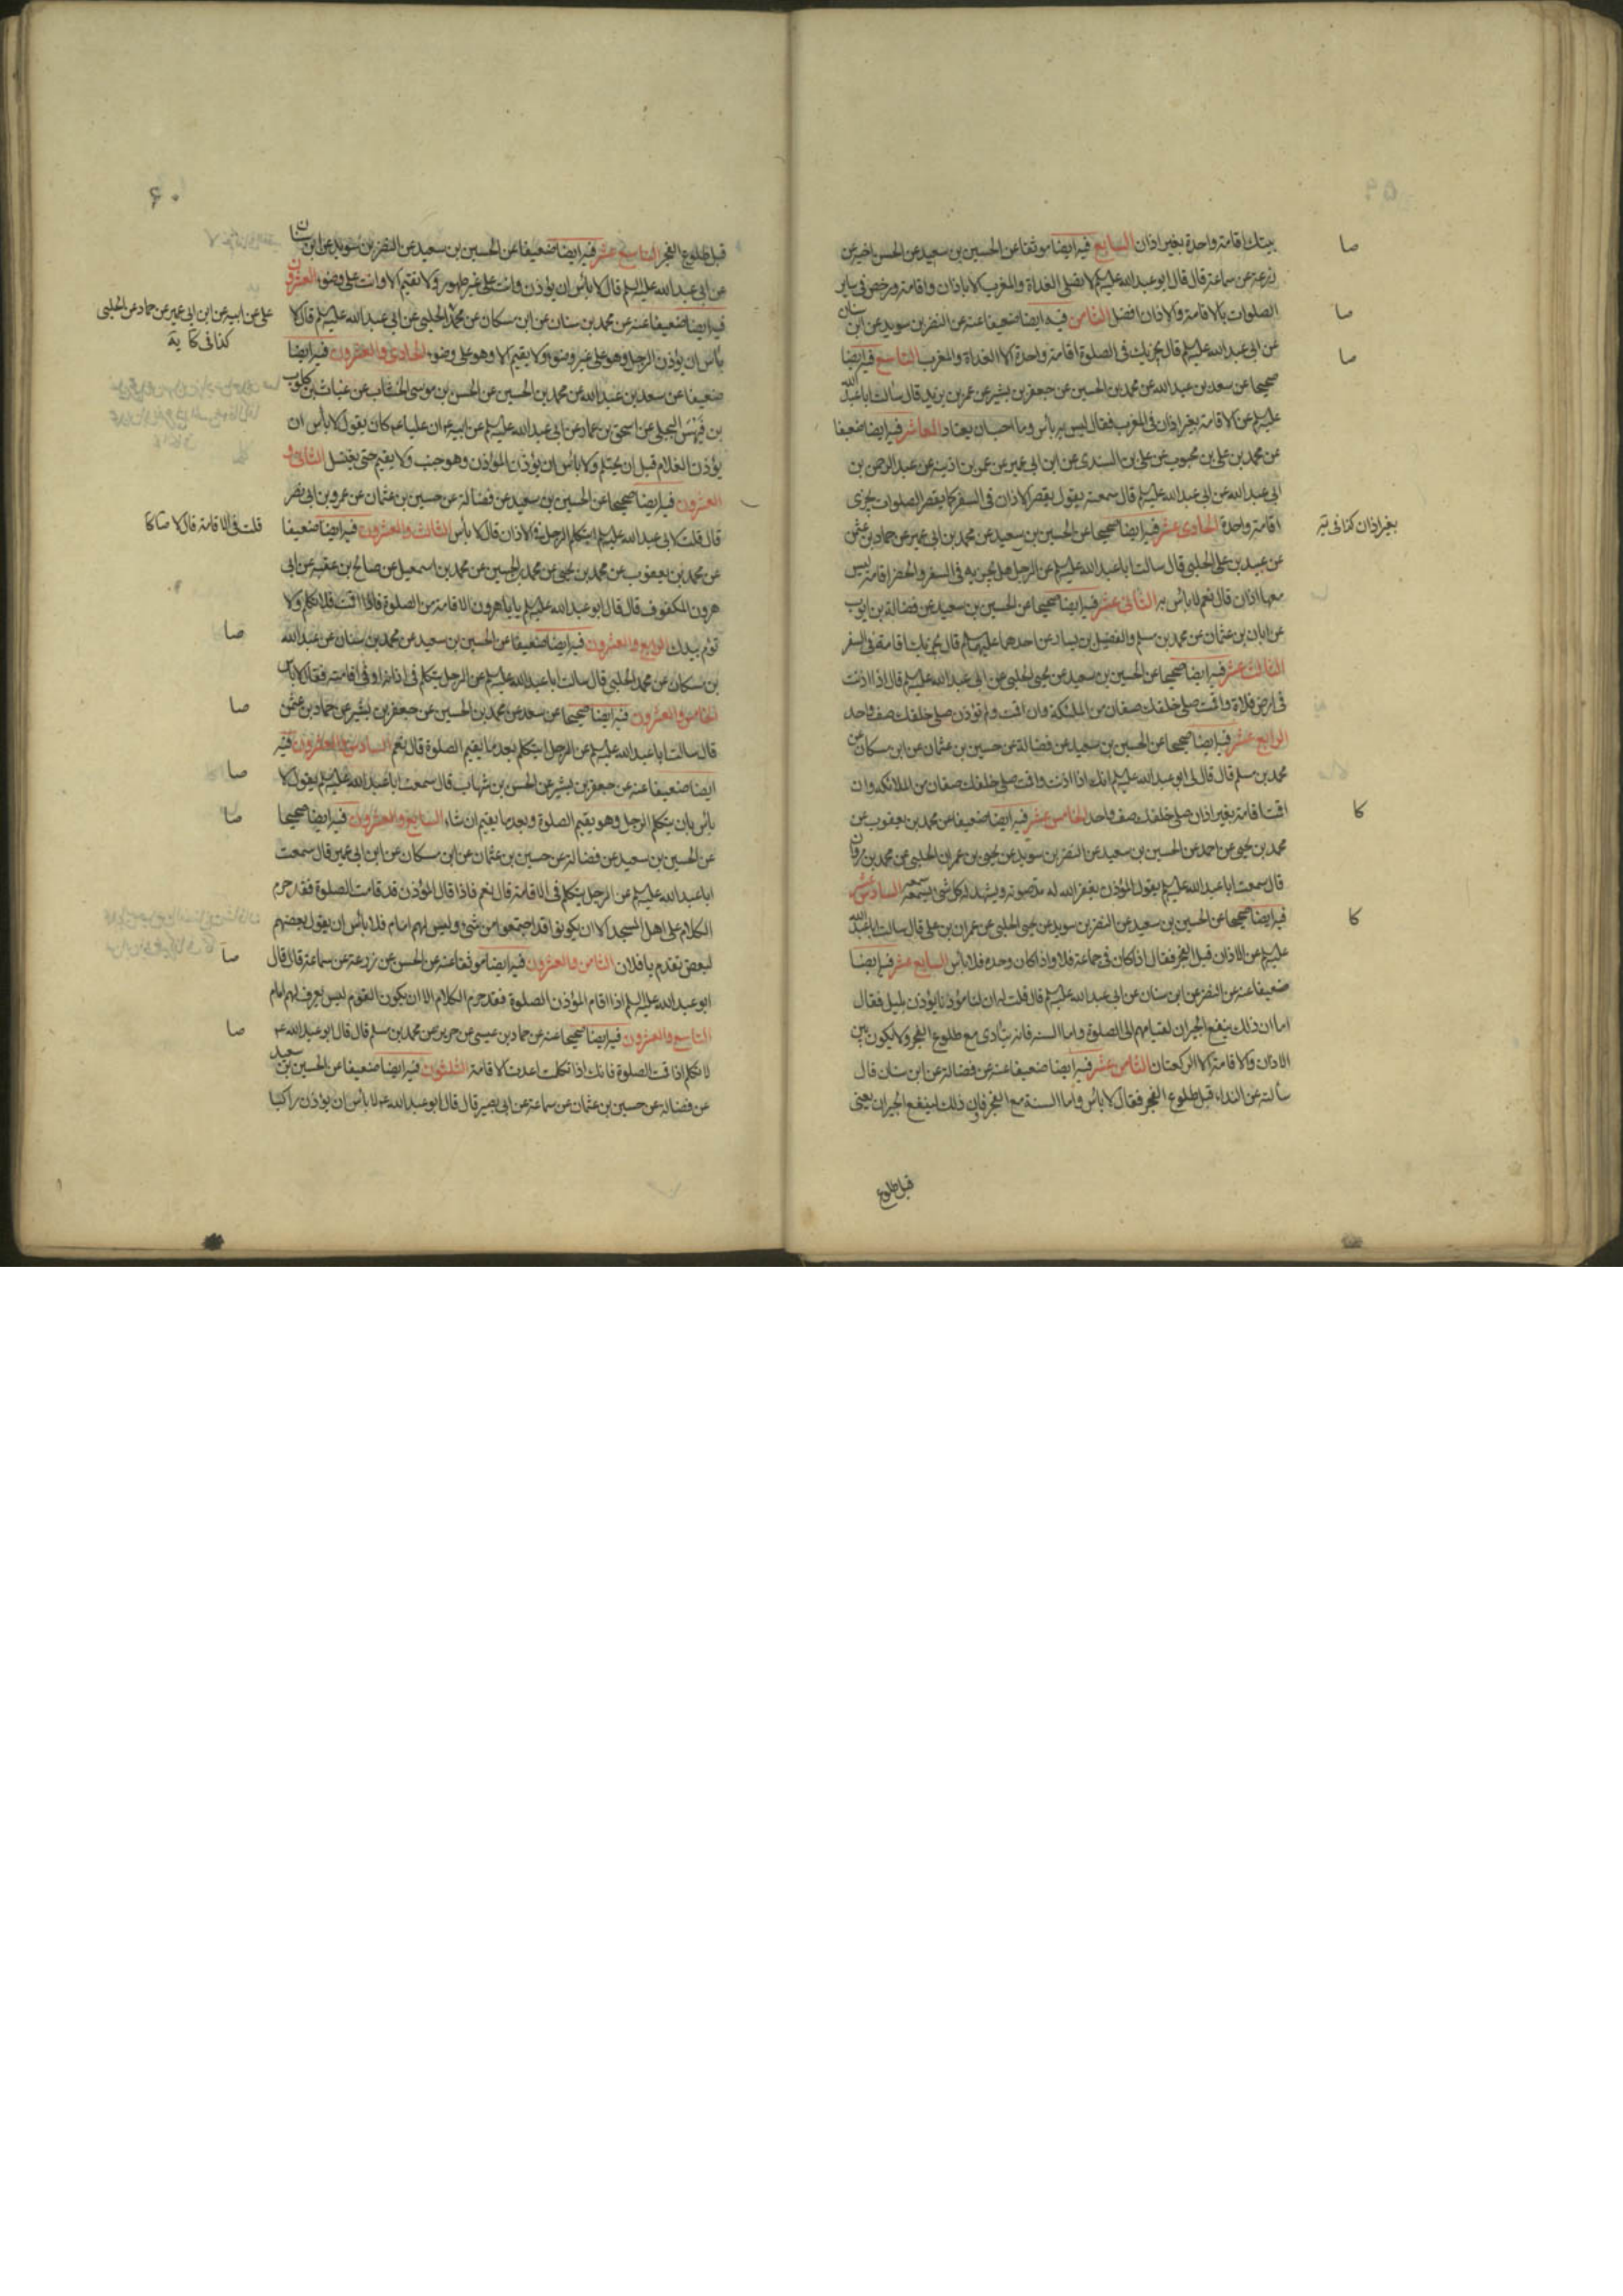 بيتك اقامة واحدة بغير اذان السابع فيه ايضا موثقا عن الحسين بن سعيد عن الحسن اخيه عن
زرعة عن سماعة قال قال ابو عبد الله عليه السلم لا تصلى الغداة والمغرب الا باذان واقامة ورخص فى ساير
الصلوات بالاقامة والاذان افضل الثامن فيه ايضا ضعيفا عنه عن النضر بن سويد عن ابن سنان
عن ابى عبد الله عليه السلم قال يجزيك فى الصلوة اقامة واحدة الا الغداة والمغرب التاسع فيه ايضا
صحيحا عن سعد بن عبد الله عن محمد بن الحسين عن جعفر بن بشير عن عمر بن يزيد قال سالت ابا عبد الله
عليه السلم عن الاقامة بغير اذان فى المغرب فقال ليس به بأس وما احب ان يعتاد العاشر فيه ايضا ضعيفا
عن محمد بن على بن محبوب عن على بن السندى عن ابن ابى عمير عن عمر بن اذينة عن عبد الرحمن بن
ابى عبد الله عن ابى عبد الله عليه السلم قال سمعته يقول يقصر الاذان فى السفر كما يقصر الصلوات يجزى
اقامة واحدة الحادى عشر فيه ايضا صحيحا عن الحسين بن سعيد عن محمد بن ابى عمير عن حماد بن عثمن
عن عبيد بن على الحلبى قال سالت ابا عبد الله عليه السلم عن الرجل هل يجزيه فى السفر والحضر اقامة ليس
معها اذان قال نعم لا بأس به الثانى عشر فيه ايضا صحيحا عن الحسين بن سعيد عن فضالة بن ايوب
عن ابان بن عثمان عن محمد بن مسلم والفضيل بن يسار عن احدهما عليهما السلم قال يجزيك اقامة فى السفر
الثالث عشر فيه ايضا صحيحا عن الحسين بن سعيد عن يحيى الحلبى عن ابى عبد الله عليه السلم قال اذا اذنت
فى ارض فلاة واقمت صلى خلفك صفان من الملئكة وان اقمت ولم تؤذن صلى خلفك صف واحد
الرابع عشر فيه ايضا صحيحا عن الحسين بن سعيد عن فضالة عن حسين بن عثمان عن ابن مسكان عن
محمد بن مسلم قال قال لى ابو عبد الله عليه السلم انك اذا اذنت واقمت صلى خلفك صفان من الملائكه وان
اقمت اقامة بغير اذان صلى خلفك صف واحد الخامس عشر فيه ايضا ضعيفا عن محمد بن يعقوب عن
محمد بن يحيى عن احمد عن الحسين بن سعيد عن النضر بن سويد عن يحيى بن عمران الحلبى عن محمد بن مروان
قال سمعت ابا عبد الله عليه السلم يقول المؤذن يغفر الله له مد صوته ويشهد له كل شىء سمعه السادس عشر
فيه ايضا صحيحا عن الحسين بن سعيد عن النضر بن سويد عن يحيى الحلبى عن عمران بن على قال سالت ابا عبد الله
عليه السلم عن الاذان قبل الفجر فقال اذا كان فى جماعة فلا واذا كان وحده فلا بأس السابع عشر فيه ايضا
ضعيفا عنه عن النضر عن ابن سنان عن ابى عبد الله عليه السلم قال قلت له ان لنا مؤذنا يؤذن بليل فقال
اما ان ذلك ينفع الجيران لقيامهم الى الصلوة واما السنه فانه ينادى مع طلوع الفجر ولا يكون بين
الاذان والاقامة الا الركعتان الثامن عشر فيه ايضا ضعيفا عنه عن فضالة عن ابن سنان قال
سألته عن النداء قبل طلوع الفجر فقال لا بأس واما السنة مع الفجر فان ذلك لينفع الجيران يعنى
قبل طلوع
صا
صا
صا
بغير اذان كذا فى
كا
كا
۶۰
قبل طلوع الفجر التاسع عشر فيه ايضا ضعيفا عن الحسين بن سعيد عن النضر بن سويد عن ابن سنان
عن ابى عبد الله عليه السلم قال لا بأس ان يؤذن وانت على غير طهور ولا تقيم الا وانت على وضوء العشرون
فيه ايضا ضعيفا عنه عن محمد بن سنان عن ابن مسكان عن محمد الحلبى عن ابى عبد الله عليه السلم قال لا
بأس ان يؤذن الرجل وهو على غير وضوء ولا يقيم الا وهو على وضوء الحادى والعشرون فيه ايضا
ضعيفا عن سعد بن عبد الله عن محمد بن الحسين عن الحسن بن موسى الخشاب عن غياث بن كلوب
بن فيهس البجلى عن اسحق بن عمار عن ابى عبد الله عليه السلم عن ابيه ان عليا ع كان يقول لا بأس ان
يؤذن الغلام قبل ان يحتلم ولا بأس ان يؤذن المؤذن وهو جنب ولا يقيم حتى يغتسل الثانى و
العشرون فيه ايضا صحيحا عن الحسين بن سعيد عن فضالة عن حسين بن عثمان عن عمرو بن ابى نصر
قال قلت لابى عبد الله عليه السلم ايتكلم الرجل فى الاذان قال لا بأس الثالث والعشرون فيه ايضا ضعيفا
عن محمد بن يعقوب عن محمد بن يحيى عن محمد بن الحسين عن محمد بن اسمعيل عن صالح بن عقبه عن ابى
هرون المكفوف قال قال ابو عبد الله عليه السلم يابا هرون الاقامة من الصلوة فاذا اقمت فلا تكلم ولا
تؤم بيدك الرابع والعشرون فيه ايضا ضعيفا عن الحسين بن سعيد عن محمد بن سنان عن عبد الله
بن مسكان عن محمد الحلبى قال سالت ابا عبد الله عليه السلم عن الرجل يتكلم فى اذانه او فى اقامته فقال لا بأس
الخامس والعشرون فيه ايضا صحيحا عن سعد عن محمد بن الحسين عن جعفر بن بشير عن حماد بن عثمن
قال سالت ابا عبد الله عليه السلم عن الرجل ايتكلم بعد ما يقيم الصلوة قال نعم السادس والعشرون فيه
ايضا ضعيفا عنه عن جعفر بن بشير عن الحسن بن شهاب قال سمعت ابا عبد الله عليه السلم يقول لا
بأس بان يتكلم الرجل وهو يقيم الصلوة وبعد ما يقيم ان شاء السابع والعشرون فيه ايضا صحيحا
عن الحسين بن سعيد عن فضالة عن حسين بن عثمان عن ابن مسكان عن ابن ابى عمير قال سمعت
ابا عبد الله عليه السلم عن الرجل يتكلم فى الاقامة قال نعم فاذا قال المؤذن قد قامت الصلوة فقد حرم
الكلام على اهل المسجد الا ان يكونوا قد اجتمعوا من شتى وليس لهم امام فلا بأس ان يقول بعضهم
لبعض تقدم يا فلان الثامن والعشرون فيه ايضا موثقا عنه عن الحسن عن زرعة عن سماعة قال قال
ابو عبد الله عليه السلم اذا اقام المؤذن الصلوة فقد حرم الكلام الا ان يكون القوم ليس يعرف لهم امام
التاسع والعشرون فيه ايضا صحيحا عنه عن حماد بن عيسى عن حريز عن محمد بن مسلم قال قال ابو عبد الله ع
لا تكلم اذا قمت الصلوة فانك اذا تكلمت اعدت الاقامة الثلثون فيه ايضا ضعيفا عن الحسين بن سعيد
عن فضالة عن حسين بن عثمان عن سماعة عن ابى بصير قال قال ابو عبد الله ع لا بأس ان يؤذن راكبا
على عن ابيه عن ابن ابى عمير عن حماد عن الحلبى
كذا فى كا يه
قلت فى الاقامة قال لا صا كا
صا
صا
صا
صا
صا
صا